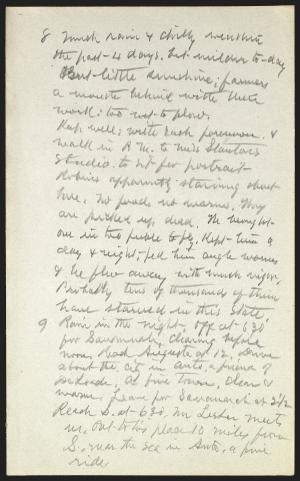 8 Much rain & chilly weather
the past 4 days. but milder to-day
But little sunshine; farmers
a month behind with their
work; too wet to plow.
Keep well; write each forenoon &
walk in P.M. to Miss
Studio to sit for portrait
Robins apparently starving about
here. No food no worms. They
are picked up dead. He brought
one in too feeble to fly. Kept him a
day & night; fed him angle worms
& he flew away with much vigor.
Probably tens of thousand of them
have starved in this State.
9 Rain in the night. Off at 6 30
for Savannah, clearing before
noon. Reach Augusta at 12. Drive
about the city in auto, a friend of
. A fine town, clean &
warm. Leave for Savannah at 2 1/2
Reach S. at 6 30. Mr Lester meets
us. Out to his place 10 miles from
S. near the sea in Auto, a fine
ride.